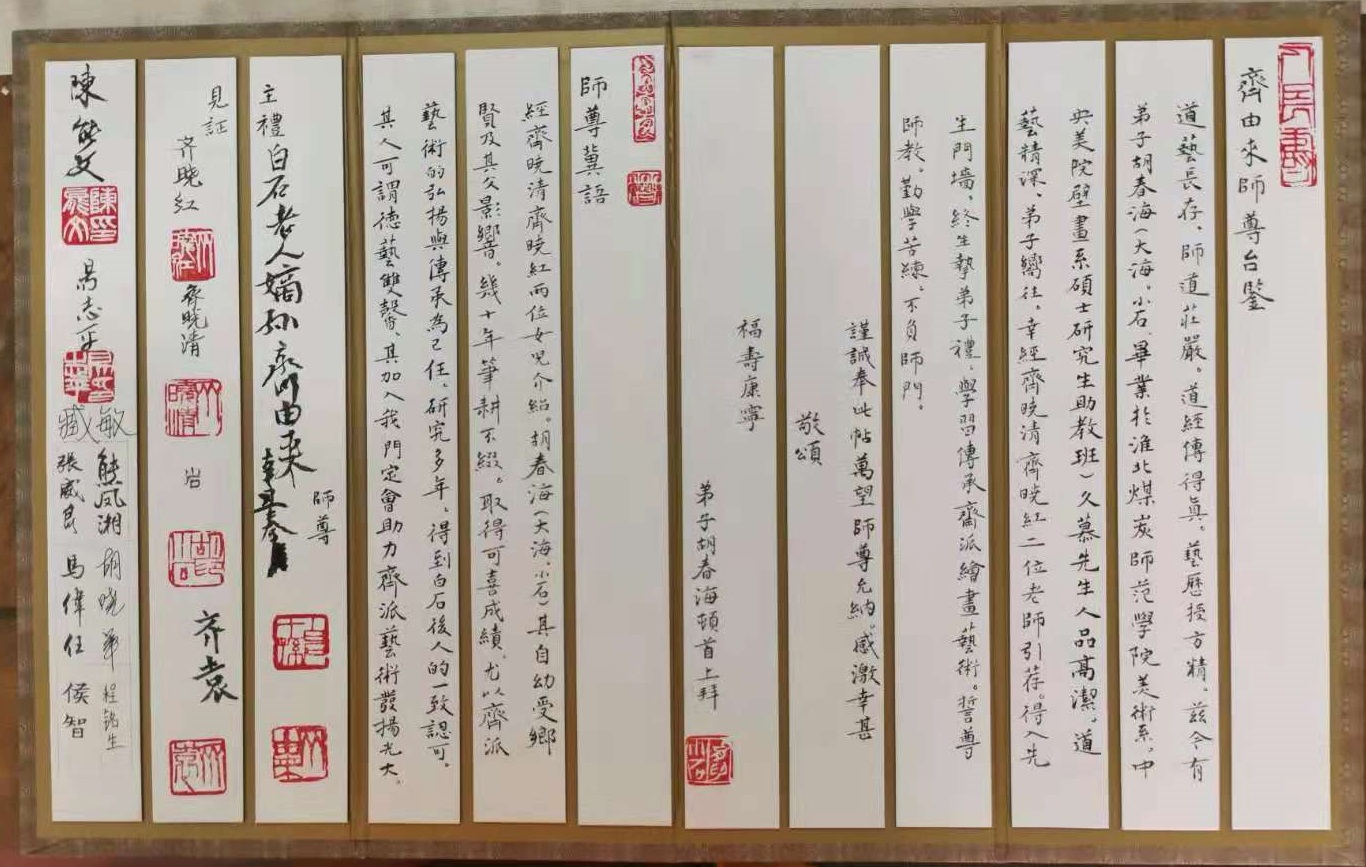 齊由來師尊台鑒
道藝長存、師道莊嚴。道經傳得眞。藝歷授方精。茲今有
弟子胡春海(大海、小石、畢業於淮北煤炭師范學院美術系。中
央美院壁畫系碩士研究生助教班)久慕先生人品高潔。道
藝精深、弟子嚮往。幸經齊曉清齊曉紅二位老師引荐。得入先
生門墻。終生執弟子禮。學習傳承齊派繪畫藝術。誓尊
師教。勤學苦練、不負師門。
謹誠奉此帖萬望師尊允納。感激幸甚
敬頌
福壽康寧
弟子胡春海頓首上拜
師尊冀語
經齊曉清齊曉紅兩位女児介紹。胡春海(大海、小石)其自幼受鄉
賢及其父影響。幾十年筆耕不綴。取得可喜成績。尤以齊派
藝術的弘揚與傳承為己任、研究多年。得到白石後人的一致認可。
其人可謂德藝雙馨、其加入我門定會助力齊派藝術發揚光大。
主禮白石老人嫡孙齊由来
師尊
見証
齐晓红
齊曉清
岩
齐袁
陳能文
易志平
臧敏
張威良 熊凤湘
馬偉任 胡曉軍
侯智 程铭生